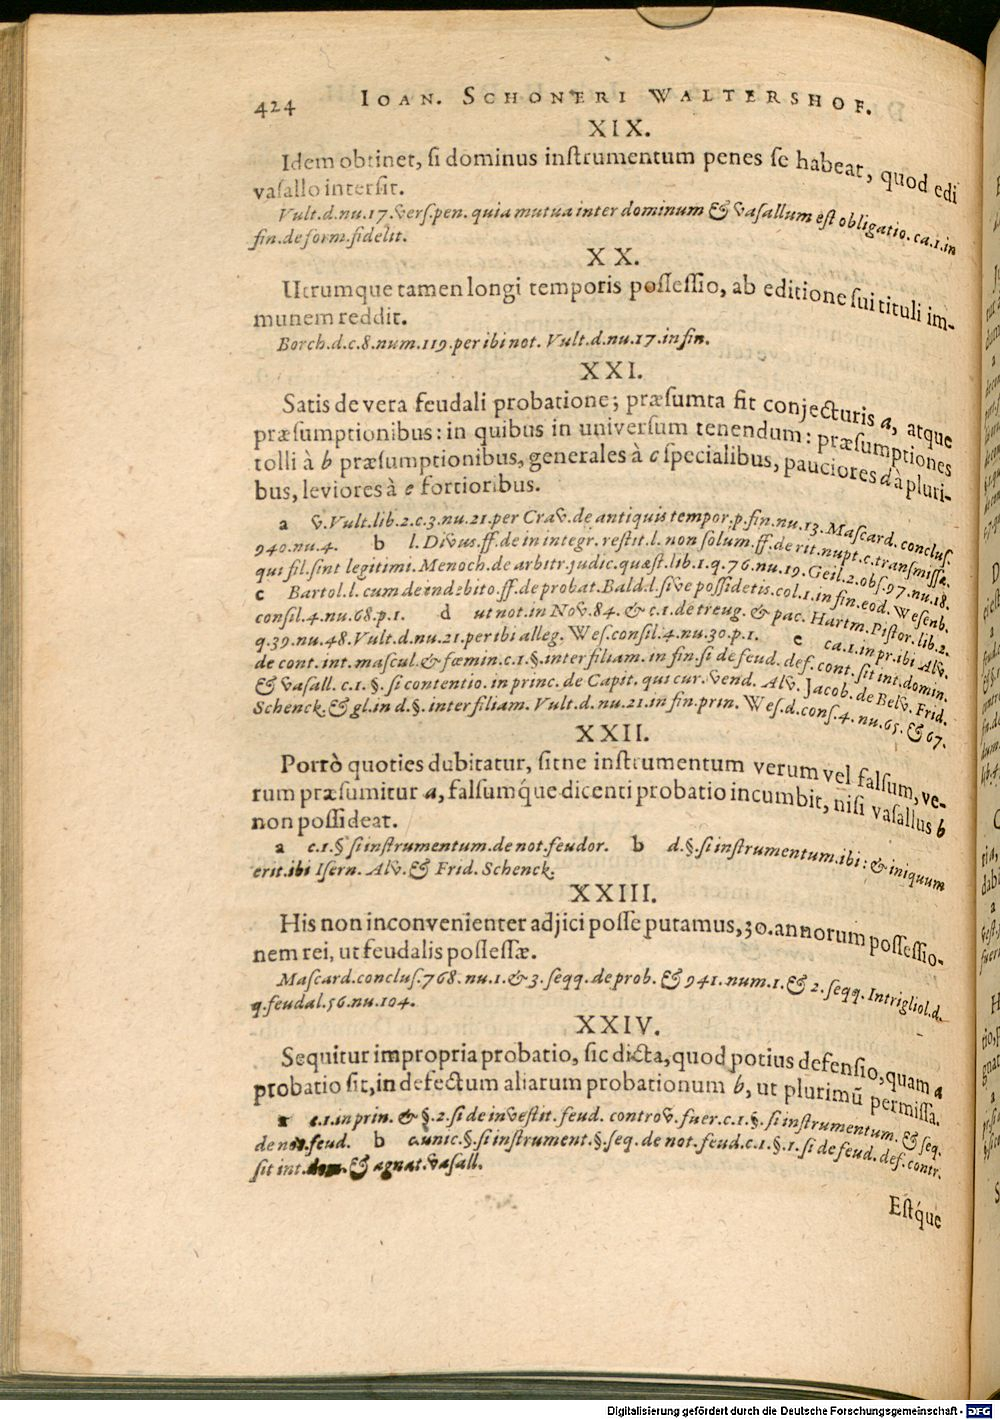 424 IOAN. SCHONERI WALTERSHOF.
XIX.
Idem obtinet, ſi dominus inſtrumentum penes ſe habeat, quod edi
vaſallo interſit.
Vult.d.nu.17.verſ.pen. quia mutua inter dominum & vaſallum eſt obligatio. ca.1.in
fin.de form.fidelit.
XX.
Utrumque tamen longi temporis poſſeſſio, ab editione ſui tituli im-
munem reddit.
Borch.d.c.8.num.119.per ibi not. Vult.d.nu.17.in fin.
XXI.
Satis de vera feudali probatione; præſumta fit conjecturis a, atque
præſumptionibus: in quibus in univerſum tenendum: præſumptiones
tolli à b præſumptionibus, generales à c ſpecialibus, pauciores d à pluri-
bus, leviores à e fortioribus.
a v.Vult.lib.2.c.3.nu.21.per Crav.de antiquis tempor.p.fin.nu.13.Maſcard. concluſ.
940.nu.4. b l.Divus.ff.de in integr.reſtit.l. non ſolum.ff.de rit.nupt.c.tranſmiſſæ.
qui fil.ſint legitimi.Menoch.de arbitr.judic.quæſt.lib.1.q.76.nu.19.Geil.2.obſ.97.nu.18.
c Bartol.l. cum de indebito.ff.de probat.Bald.l.ſive poſſidetis.col.1.in fin.eod. Weſenb.
conſil.4.nu.68.p.1. d ut not.in Nov.84. & c.1.de treug. & pac. Hartm.Piſtor.lib.2.
q.39.nu.48.Vult.d.nu.21.per ibi alleg. Weſ.conſil.4.nu.30.p.1. e ca.1.in pr.ibi Alv.
de cont.int.maſcul.& fœmin.c.1.§.inter filiam.in fin.ſi de feud. def. cont.ſit int.domin.
& vaſall. c.1.§. ſi contentio.in princ. de Capit. qui cur.vend. Alv. Jacob.de Belv. Frid.
Schenck.& gl.in d.§. inter filiam. Vult.d. nu.21.in fin.prin. Weſ.d.conſ.4. nu.65. & 67.
XXII.
Porrò quoties dubitatur, ſitne inſtrumentum verum vel falſum, ve-
rum præſumitur a, falſumq́ue dicenti probatio incumbit, niſi vaſallus b
non poſſideat.
a c.1.§ ſi inſtrumentum.de not.feudor. b d.§.ſi inſtrumentum.ibi: & iniquum
erit.ibi Iſern. Alv.& Frid. Schenck.
XXIII.
His non inconvenienter adjici poſſe putamus, 30.annorum poſſeſſio-
nem rei, ut feudalis poſſeſſæ.
Maſcard.concluſ.768.nu.1.& 3.ſeqq.de prob. & 941.num.1.& 2.ſeqq.Intrigliol.d.
q.feudal.56.nu.104.
XXIV.
Sequitur impropria probatio, ſic dicta, quod potius defenſio, quam a
probatio ſit, in defectum aliarum probationum b, ut plurimũ permiſſa.
a c.1.in prin. & §.2.ſi de inveſtit. feud. controv.fuer.c.1.§. ſi inſtrumentum. & ſeq.
de not.feud. b c.unic.§.ſi inſtrument.§.ſeq. de not.feud.c.1.§.1.ſi de feud. def. contr.
ſit int.dom.& agnat.vaſall.
Eſtq́ue
Digitalisierung gefördert durch die Deutsche Forschungsgemeinschaft - DFG